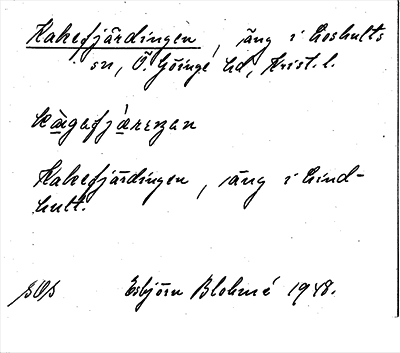 Kakefjärdingen, äng i Loshults
sn, Ö. Göinge hd, Krist. l.
kàgafjærezan
Kakefjärdingen, äng i Lind-
hult.
SOS Esbjörn Blohmé 1948.